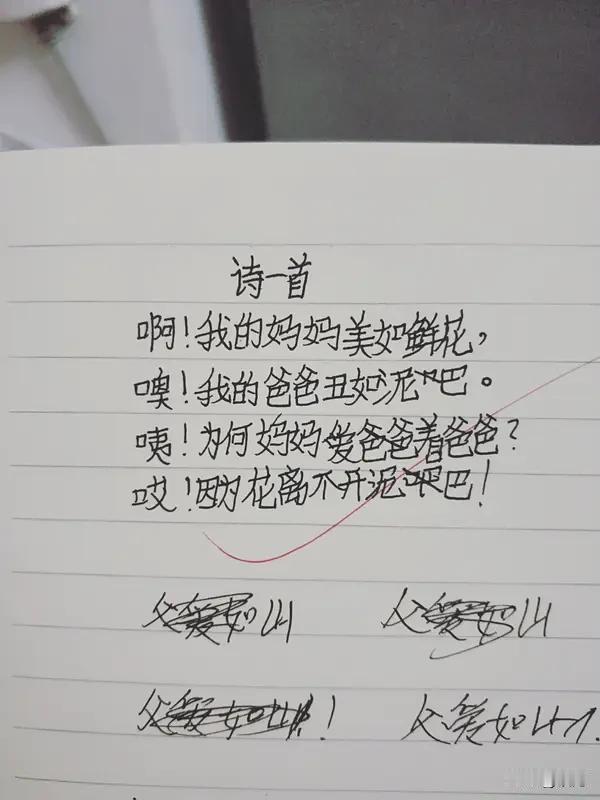 诗一首
啊!我的妈妈美如鲜花,
噢!我的爸爸丑如泥吧。
咦!为何妈妈爱爸爸着爸爸?
哎!因为花离不开泥吧!
父爱如山 父爱如山
父爱如山! 父爱如山!